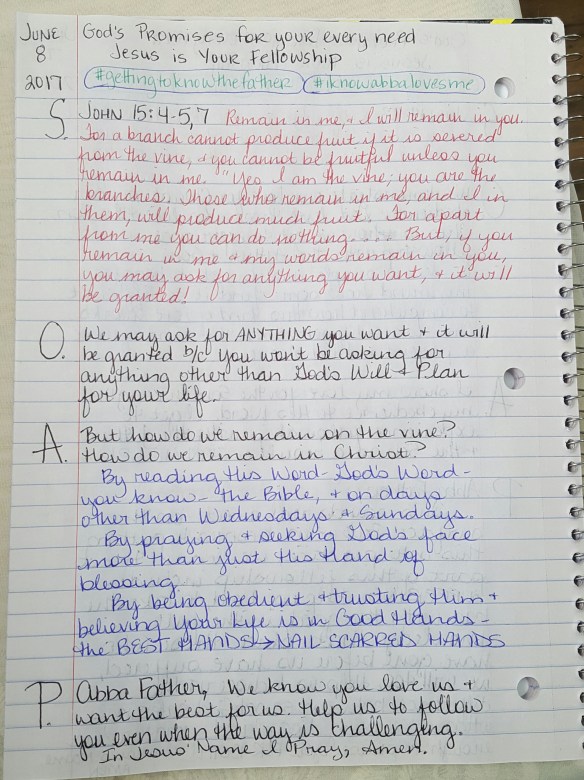 JUNE God's Promises for your every need
8 Jesus is Your Fellowship
2017 #gettingtoknowthefather #iknowabbalovesme
S. JOHN 15:4-5,7 Remain in me, + I will remain in you.
For a branch cannot produce fruit if it is severed
from the vine, + you cannot be fruitful unless you
remain in me. "Yes I am the vine; you are the
branches. Those who remain in me, and I in
them, will produce much fruit. For apart
from me you can do nothing.... But, if you
remain in me + my words remain in you,
you may ask for anything you want, + it will
be granted!
O. We may ask for ANYTHING you want + it will
be granted b/c you won't be asking for
anything other than God's Will + Plan
for your life.
A. But how do we remain on the vine?
How do we remain in Christ?
By reading His Word - God's Word -
you know - the Bible, + on days
other than Wednesdays + Sundays.
By praying + seeking God's face
more than just His Hand of
blessing.
By being obedient + trusting Him +
believing Your Life is in Good Hands -
the BEST HANDS → NAIL SCARRED HANDS
P. Abba Father, We know you love us +
want the best for us. Help us to follow
you even when the way is challenging.
In Jesus' Name I Pray, Amen.